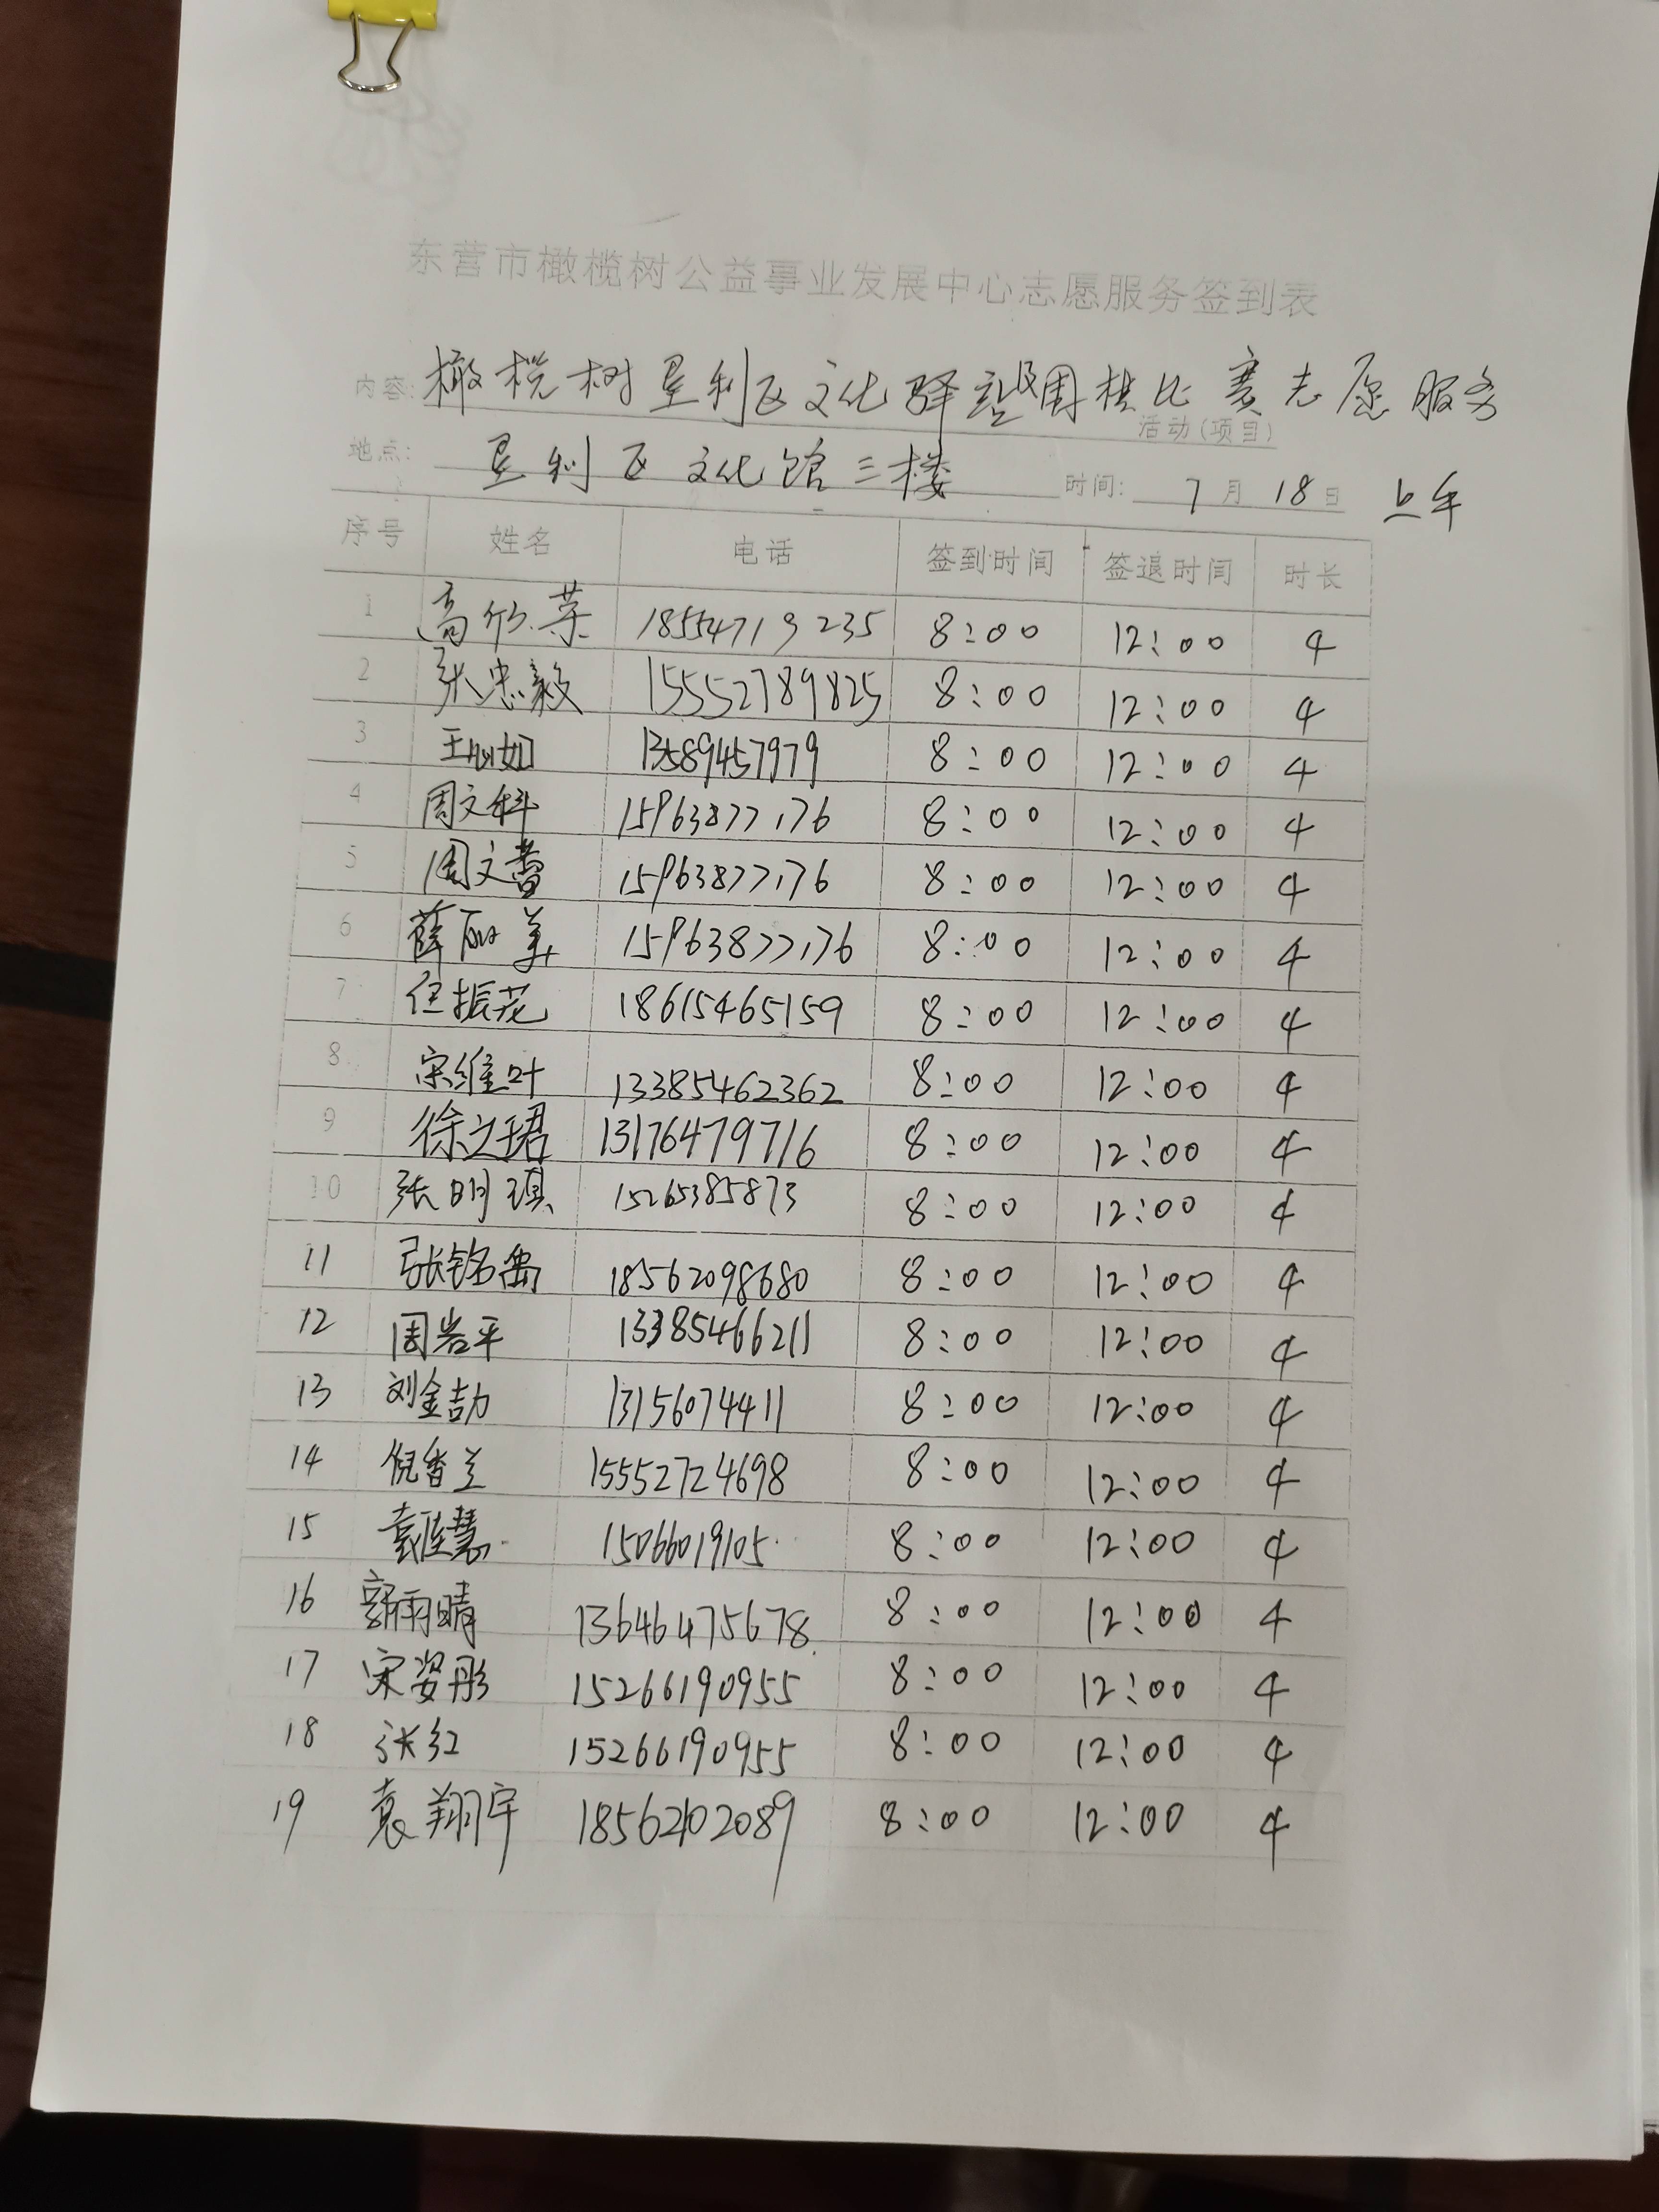 东营市橄榄树公益事业发展中心志愿服务签到表
内容: 橄榄树垦利区文化驿站围棋比赛志愿服务
活动(项目)
地点: 垦利区文化馆三楼 时间: 7月18日 上午
序号 姓名 电话 签到时间 签退时间 时长
1 高欣荣 18554719235 8:00 12:00 4
2 张忠毅 15552789825 8:00 12:00 4
3 王心如 13589457979 8:00 12:00 4
4 周文科 15963877176 8:00 12:00 4
5 周文蕾 15963877176 8:00 12:00 4
6 薛丽美 15963877176 8:00 12:00 4
7 任振花 18615465159 8:00 12:00 4
8 宋维叶 13385462362 8:00 12:00 4
9 徐立珺 13176479716 8:00 12:00 4
10 张明琪 1526385873 8:00 12:00 4
11 张铭禹 18562098680 8:00 12:00 4
12 周岩平 13385466211 8:00 12:00 4
13 刘金喆 13156074411 8:00 12:00 4
14 倪香兰 15552724698 8:00 12:00 4
15 袁佳慧 15066019105 8:00 12:00 4
16 郭雨晴 13646475678 8:00 12:00 4
17 宋姿彤 15266190955 8:00 12:00 4
18 张红 15266190955 8:00 12:00 4
19 袁翔宇 18562102089 8:00 12:00 4